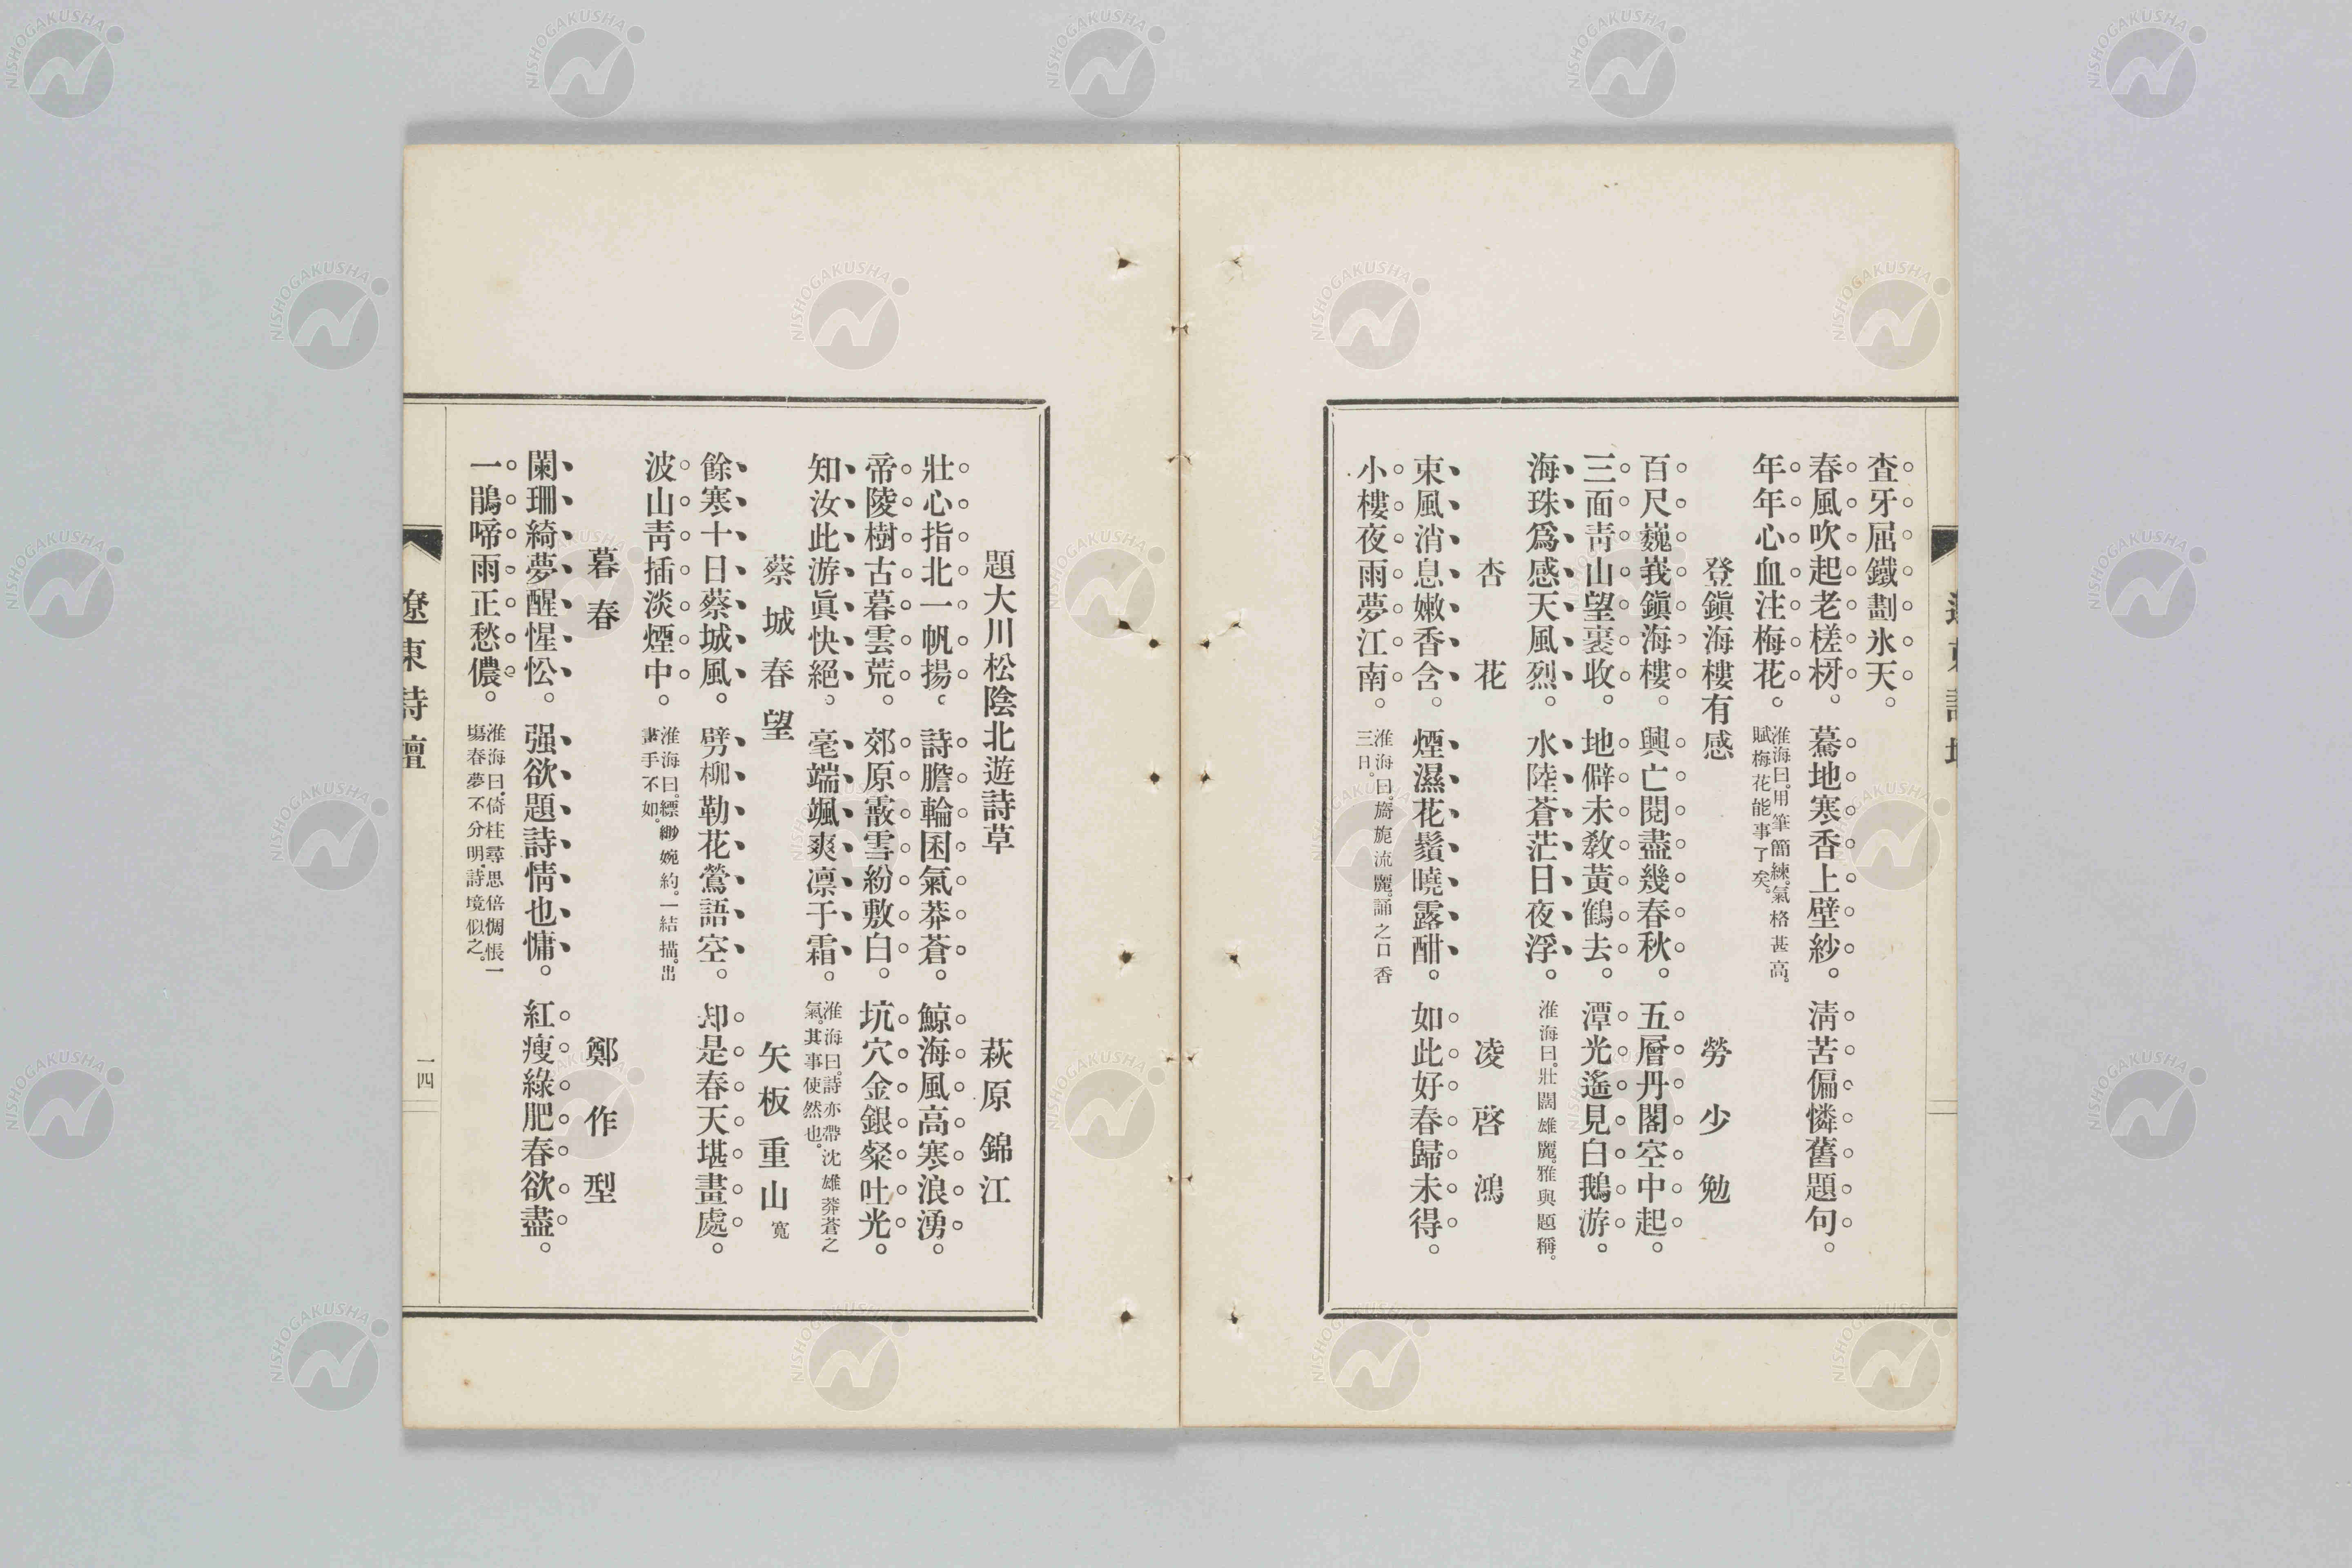 査牙屈鐵劃氷天。
春風吹起老槎枒。驀地寒香上壁紗。淸苦偏憐舊題句。
年年心血注梅花。
淮海曰。用筆簡練。氣格甚高。
賦梅花能事了矣。
登鎭海樓有感
勞少勉
百尺巍峩鎭海樓。興亡閱盡幾春秋。五層丹閣空中起。
三面靑山望裏收。地僻未敎黃鶴去。潭光遙見白鵝游。
海珠爲感天風烈。水陸蒼茫日夜浮。
淮海曰。壯闊雄麗。雅與題稱。
杏花
凌啓鴻
東風消息嫩香含。煙濕花鬚曉露酣。如此好春歸未得。
小樓夜雨夢江南。
淮海曰。旖旎流麗。誦之口香
三日。
題大川松陰北遊詩草
萩原錦江
壯心指北一帆揚。詩膽輪囷氣莽蒼。鯨海風高寒浪湧。
帝陵樹古暮雲荒。郊原霰雪紛敷白。坑穴金銀粲吐光。
知汝此游眞快絕。毫端颯爽凛于霜。
淮海曰。詩亦帶沈雄莽蒼之
氣。其事使然也。
蔡城春望
矢板重山寬
餘寒十日蔡城風。劈柳勒花鶯語空。却是春天堪畫處。
波山靑插淡煙中。
淮海曰。縹緲婉約。一結描。出
畫手不如。
暮春
鄭作型
闌珊綺夢醒惺忪。强欲題詩情也慵。紅瘦綠肥春欲盡。
一鵑啼雨正愁儂。
淮海曰。倚柱尋思倍惆悵一
塲春夢不分明。詩境似之。
遼東詩壇
一四
NISHOGAKUSHA